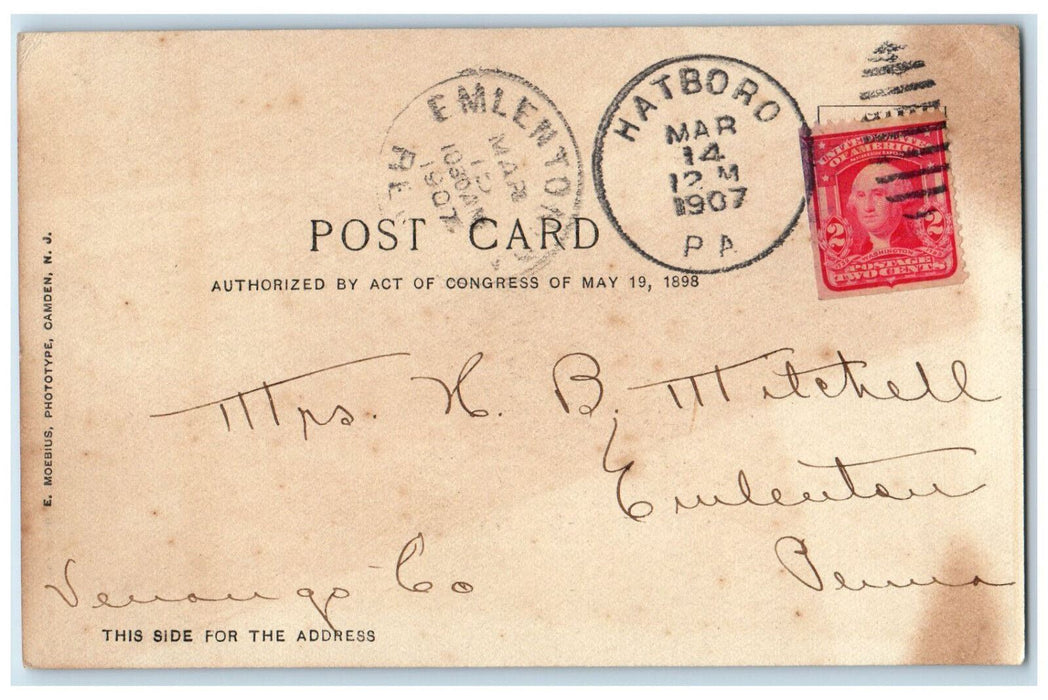 EMLENTON
MAR
1030AM
1907
HATBORO
MAR
14
12 M
1907
PA
UNITED STATES
OF AMERICA
2 2
WASHINGTON
POSTAGE
TWO CENTS
POST CARD
AUTHORIZED BY ACT OF CONGRESS OF MAY 19, 1898
E. MOEBIUS, PHOTOTYPE, CAMDEN, N. J.
Mrs. H. B. Mitchell
Emlenton
Penna
Venango Co
THIS SIDE FOR THE ADDRESS